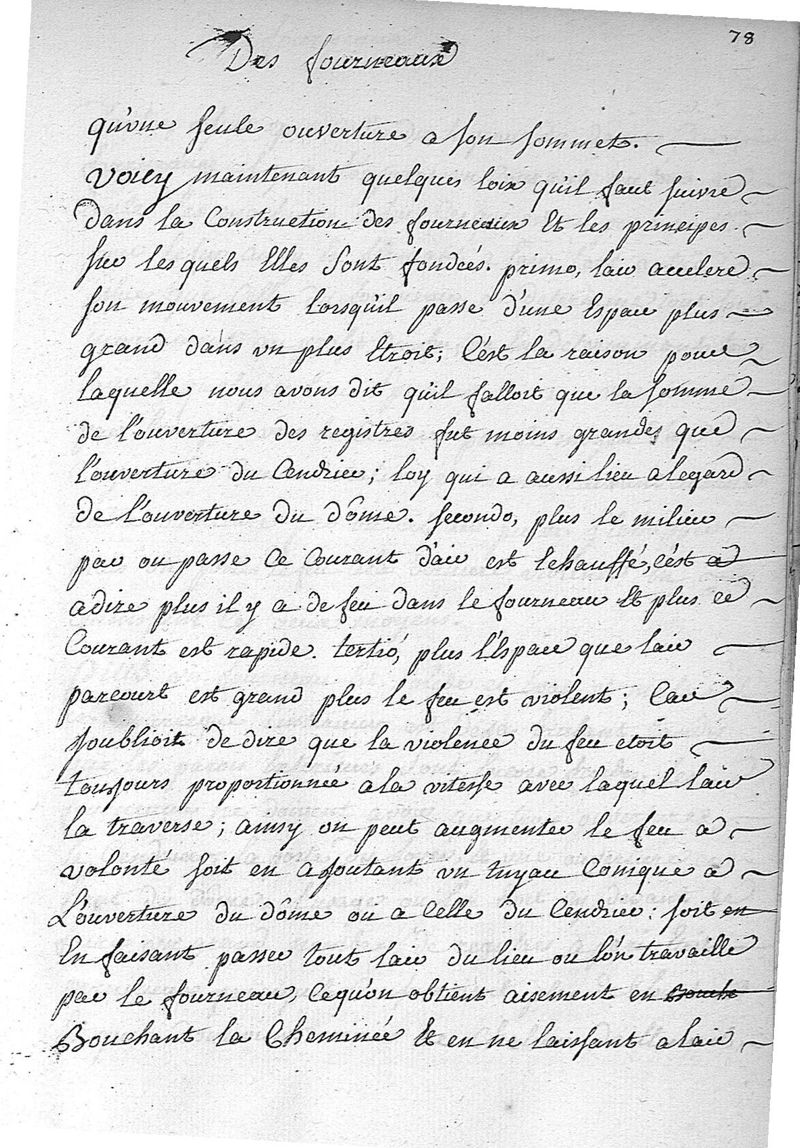 78
Des fourneaux
qu'vne seule ouverture a son sommet.
Voicy maintenant quelques loix qu'il faut suivre
dans la Construction des fourneaux Et les principes
sur les quels Elles sont fondées. primo, l'air accelere
son mouvement lorsqu'il passe d'une Espace plus
grand dans vn plus Etroit; C'est la raison pour
laquelle nous avons dit qu'il falloit que la somme
de l'ouverture des registres fut moins grandes que
l'ouverture du Cendrier; loy qui a aussi lieu a legard
de l'ouverture du dôme. secondo, plus le milieu
par ou passe Ce Courant d'air est Echauffé, c'est a
adire plus il y a de feu dans le fourneau Et plus ce
Courant est rapide. tertió, plus l'Espace que l'air
parcourt est grand plus le feu est violent; Car
joublioit de dire que la violence du feu etoit
toujours proportionnee a la vitesse avec laquel l'air
la traverse; ainsy on peut augmenter le feu a
volonté soit en ajoutant vn tuyau Conique a
L'ouverture du dôme ou a Celle du Cendrier: soit en
En faisant passer tout l'air du lieu ou l'on travaille
par le fourneau, Cequ'on obtient aisement en Bouch
Bouchant la Cheminée Et en ne laissant a l'air